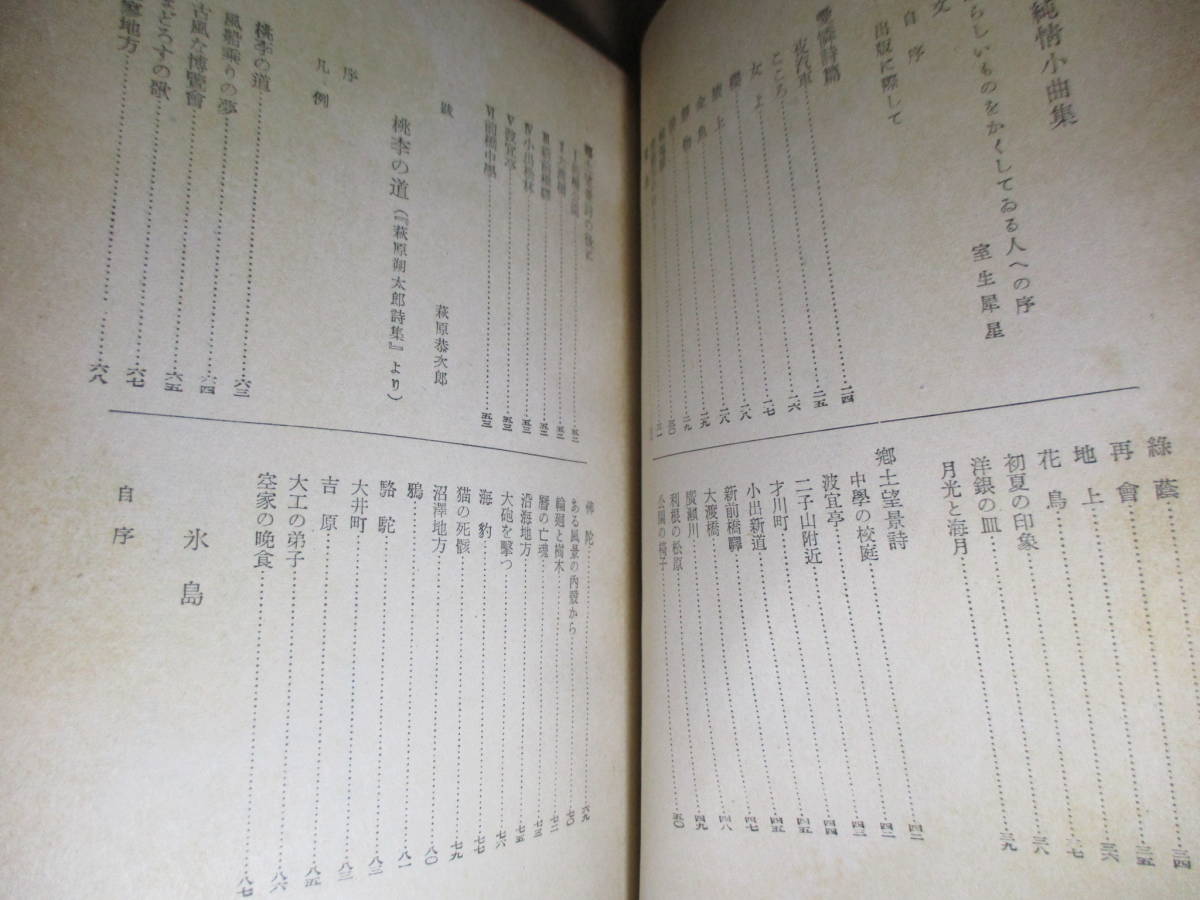 純情小曲集
らしいものをかくしてゐる人への序
室生犀星
文
自序
出版に際して
愛憐詩篇……二四
夜汽車……二五
こころ……二六
女よ……二七
櫻……二八
旅上……二八
金魚……二九
靜物……二九
綠蔭……三四
再會……三五
地上……三六
花鳥……三七
初夏の印象……三八
洋銀の皿……三九
月光と海月
鄕土望景詩……四二
中學の校庭……四三
波宜亭……四四
二子山附近……四五
才川町……四六
小出新道……四七
新前橋驛……四八
大渡橋……四九
廣瀨川
利根の松原……五〇
公園の椅子
Ⅳ小出松林……五三
Ⅴ波宜亭……五三
Ⅵ前橋中學……五三
跋
萩原恭次郎
桃李の道(『萩原朔太郎詩集』より)
序
凡例
桃李の道……六三
風船乘りの夢……六四
古風な博覽會……六五
まどろすの歌……六七
室地方……六八
佛陀……六九
ある風景の內殼から……七〇
輪廻と樹木……七二
曆の亡魂……七三
沿海地方……七五
大砲を擊つ……七六
海豹……七七
猫の死骸……七九
沼澤地方……八〇
鴉……八一
駱駝……八二
大井町……八三
吉原……八五
大工の弟子……八六
空家の晩食……八七
氷島
自序